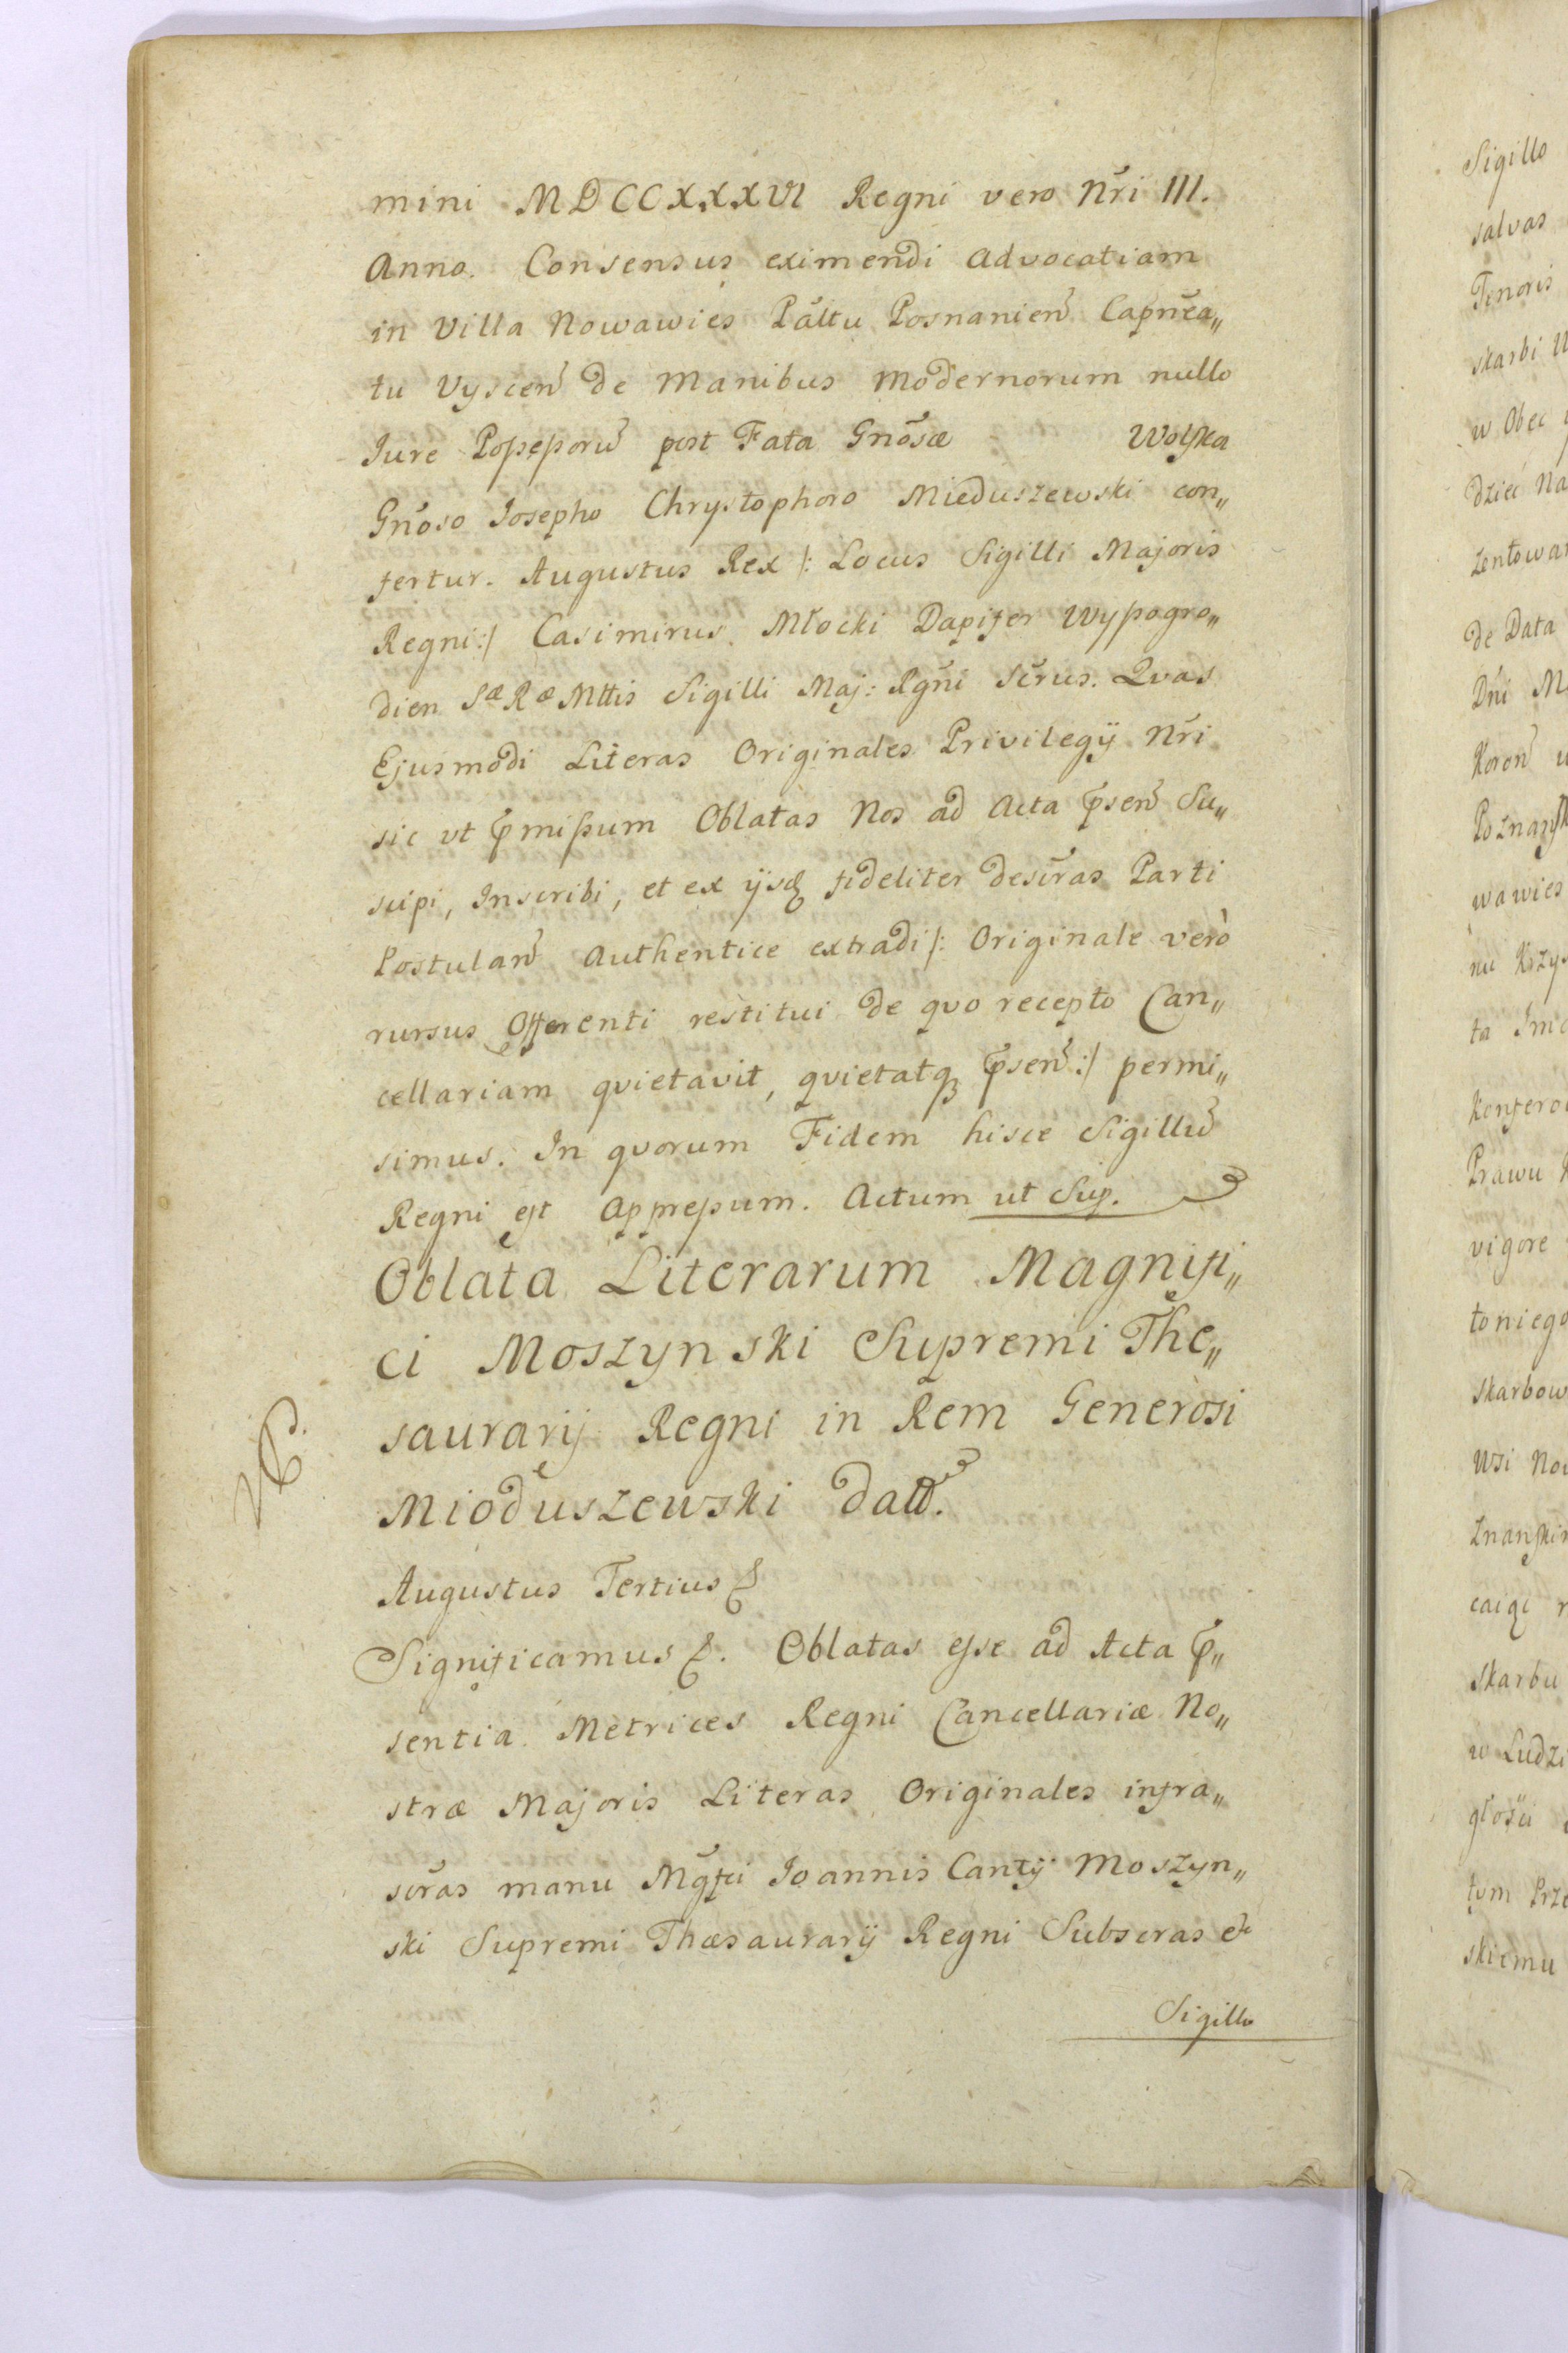 mini MDCCXXXVI Regni vero Nr̃i III.
Anno. Consensus eximendi Advocatiam
in Villa Nowawies Pãltu Posnanien̄ Capñea„
tu Uyscen̄ de Manibus modernorum nullo
Jure Poſseſsorū post Fata Gnõsæ Wolſka
Gnõso Josepho Chrystophoro Mieduszewski con„
fertur. Augustus Rex /: Locus Sigilli Majoris
Regni :/ Casimirus Młocki Dapifer Wyſsogro„
dien SæRæMttis Sigilli Maj: Rgñi Scr̃us. Qvas
Ejusmodi Literas Originales Privilegij Nr̃i
sic ut p̄miſsum Oblatas Nos ad Acta p̄sen̄ Su„
scipi, Inscribi, et ex ijsq̨ fideliter descr̃as Parti
Postulan̄ Authentice extradi /: Originale verò
rursus Offerenti restitui de qvo recepto Can„
cellariam qvietavit, qvietatq̨ p̄sen̄ :/ permi„
simus. In qvorum Fidem hisce Sigillū
Regni eſt Appreſsum. Actum ut Sup.
Oblata Literarum Magnifi„
ci Moszynski Supremi The„
saurarij Regni in Rem Generosi
Mioduszewski Datt̄.
Augustus Tertius &
Significamus &. Oblatas eſse ad Acta p̄„
sentia Metrices Regni Cancellariæ No„
stræ Majoris Literas Originales infra„
scr̃as manu Mg̃fci Joannis Cantij Moszyn„
ski Supremi Thæsaurarij Regni Subscras &
Sigillo
Sigillo
salvas
Tenoris
skarbi
w Obec
dziec Na
zentowa
de Data
Dñi M
Koron̄
wawies
nu Krzy
ta Jmc
Konfero
Prawu
vigore
toniego
Skarbow
Wsi No
znanſki
caiąc
Skarbu
w Ludzi
głości
tym Prze
skiemu